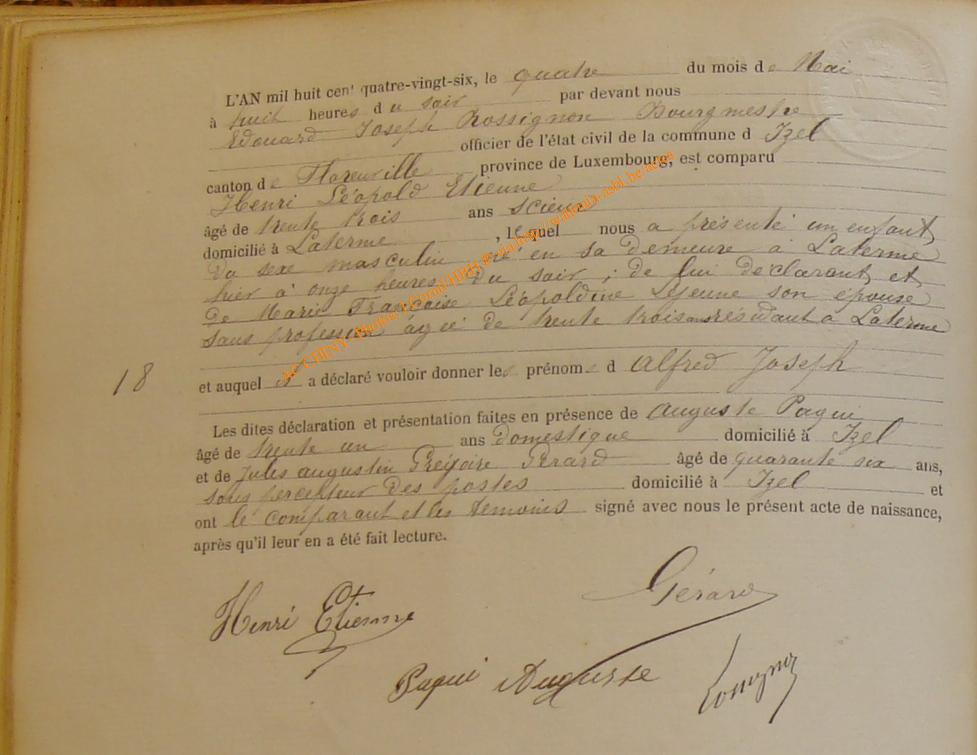 L'AN mil huit cent quatre-vingt-six, le quatre du mois de Mai
à huit heures du soir par devant nous
Edouard Joseph Rossignon Bourgmestre
officier de l'état civil de la commune d Izel
canton de Florenville province de Luxembourg, est comparu
Henri Léopold Etienne
âgé de trente trois ans scieur
domicilié à Laterme, lequel nous a présenté un enfant
du sexe masculin né en sa demeure à Laterme
hier à onze heures du soir ; de lui déclarant et
de Marie Françoise Léopoldine Lejeune son épouse
sans profession âgée de trente trois ans résidant à Laterme
18
et auquel il a déclaré vouloir donner les prénoms d Alfred Joseph
Les dites déclaration et présentation faites en présence de Auguste Paqui
âgé de trente un ans Domestique domicilié à Izel
et de Jules Augustin Grégoire Gérard âgé de quarante six ans,
sous percepteur des postes domicilié à Izel et
ont le comparant et les témoins signé avec nous le présent acte de naissance,
après qu'il leur en a été fait lecture.
Henri Etienne
Gérard
Paqui Auguste